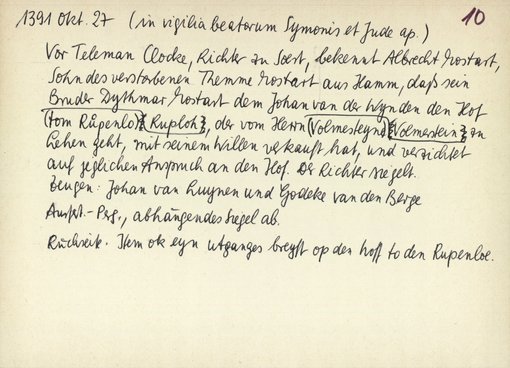 1391 Okt. 27 (in vigilia beatorum Symonis et Jude ap.) 10
Vor Teleman Clocke, Richter zu Soest, bekennt Albrecht Mostart,
Sohn des verstorbenen Themme Mostart aus Hamm, daß sein
Bruder Dythmar Mostart dem Johan van der Wynden den Hof
(tom Růpenlo) { Ruploh }, der vom Herrn (Volmesteyn) { Volmestein } zu
Lehen geht, mit seinem Willen verkauft hat, und verzichtet
auf jeglichen Anspruch an den Hof. Der Richter siegelt.
Zeugen: Johan van Luynen und Godeke van den Berge
Ausf.-Perg., abhängendes Siegel ab.
Rückseite: Item ok eyn utganges breyff op den hoff to den Rupenloe.